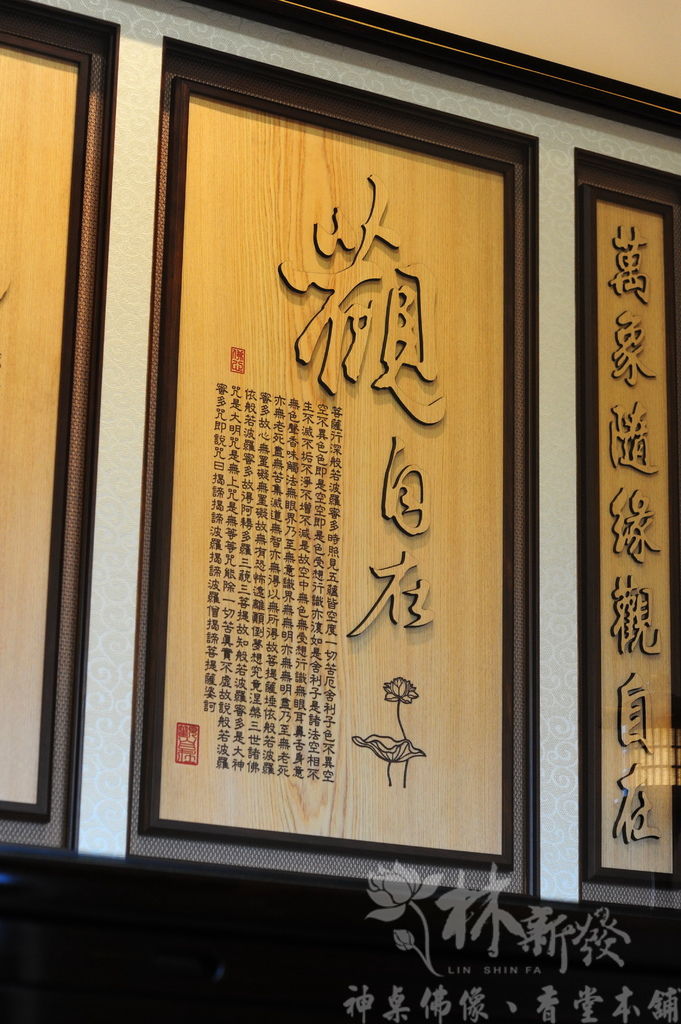 觀自在
菩薩行深般若波羅蜜多時照見五蘊皆空度一切苦厄舍利子色不異空
空不異色色即是空空即是色受想行識亦復如是舍利子是諸法空相不
生不滅不垢不淨不增不減是故空中無色無受想行識無眼耳鼻舌身意
無色聲香味觸法無眼界乃至無意識界無無明亦無無明盡乃至無老死
亦無老死盡無苦集滅道無智亦無得以無所得故菩提薩埵依般若波羅
蜜多故心無罣礙無罣礙故無有恐怖遠離顛倒夢想究竟涅槃三世諸佛
依般若波羅蜜多故得阿耨多羅三藐三菩提故知般若波羅蜜多是大神
咒是大明咒是無上咒是無等等咒能除一切苦真實不虛故說般若波羅
蜜多咒即說咒曰揭諦揭諦波羅揭諦波羅僧揭諦菩提薩婆訶
萬象隨緣觀自在
林新發
LIN SHIN FA
神桌佛像、香堂本舖